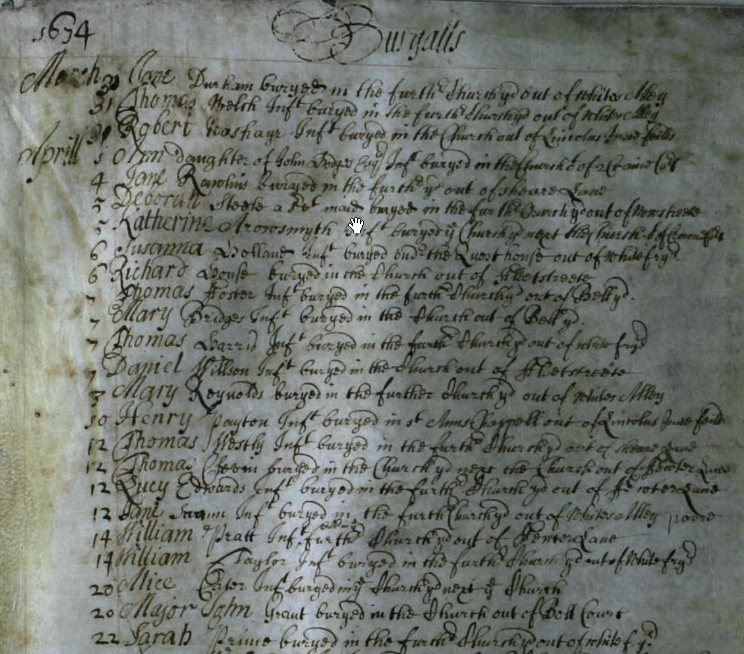 1674
Buryalls
March 31 Jane Durham buryed in the furth: Churchyd out of Whites Alley
31 Thomas Welch Inft buryed in the furth Churchyd out of White Alley
31 Robert Inft buryed in the Church out of Lincolns Inne
Aprill 3 Ann daughter of John Esq Inft buryed in the Church
4 Jane Rawlins buryed in the furth: yd out of sheare Lane
5 Deborah Steele a maid buryed in the furth: Churchyd out of Newstreete
5 Katherine Arrowsmyth Inft buryed ye Churchyd next the Church
6 Susanna Holland Inft buryed undr the Quest house out of white fryd
6 Richard House buryed in the Church out of Fleetstreete
7 Thomas Foster Inft buryed in the furth: Churchyd out of Bell yd.
7 Mary Bridges Inft buryed in the Church out of Bell yd
7 Thomas Harris Inft buryed in the furth Churchyd out of white fryd
7 Daniel Willson Inft buryed in the Church out of Fleetstreete
Mary Reynolds buryed in the further Churchyd out of Whites Alley
10 Henry Payton Inft buryed in st Anns Chappell out of Lincolns Inne
12 Thomas Mostly Inft buryed in the furth: Churchyd out of sheare Lane
12 Thomas buryed in the Churchyd next the Church out of Fewter Lane
12 Lucy Edwards Inft buryed in the furth: Churchyd out of Fewter Lane
12 Jane Inft buryed in the furth Churchyd out of Whites Alley poore
14 William Pratt Inft furth: Churchyd out of Fewter Lane
14 William Taylor Inft buryed in the furth: Churchyd out of White fryd
20 Alice Cater Inf buryed in ye Churchyd next ye Church
20 Major John Grant buryed in the Church out of Bolt Court
22 Sarah Prime buryed in the furth: Churchyd out of white fryd